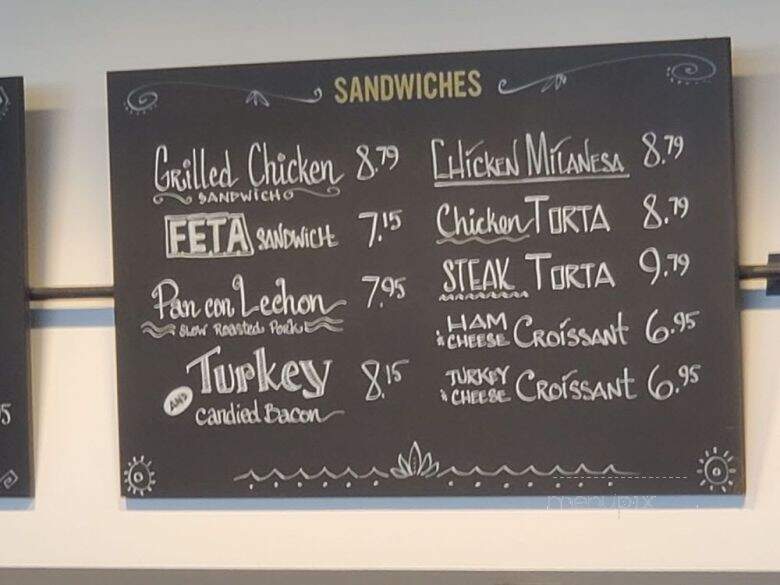 SANDWICHES
Grilled Chicken 8.79
SANDWICH
FETA SANDWICH 7.15
Pan con Lechon 7.95
Slow Roasted Pork
Turkey 8.15
AND
Candied Bacon
CHICKEN MILANESA 8.79
Chicken TORTA 8.79
STEAK TORTA 9.79
HAM
& CHEESE CROISSANT 6.95
TURKEY
& CHEESE CROISSANT 6.95
5
menupix